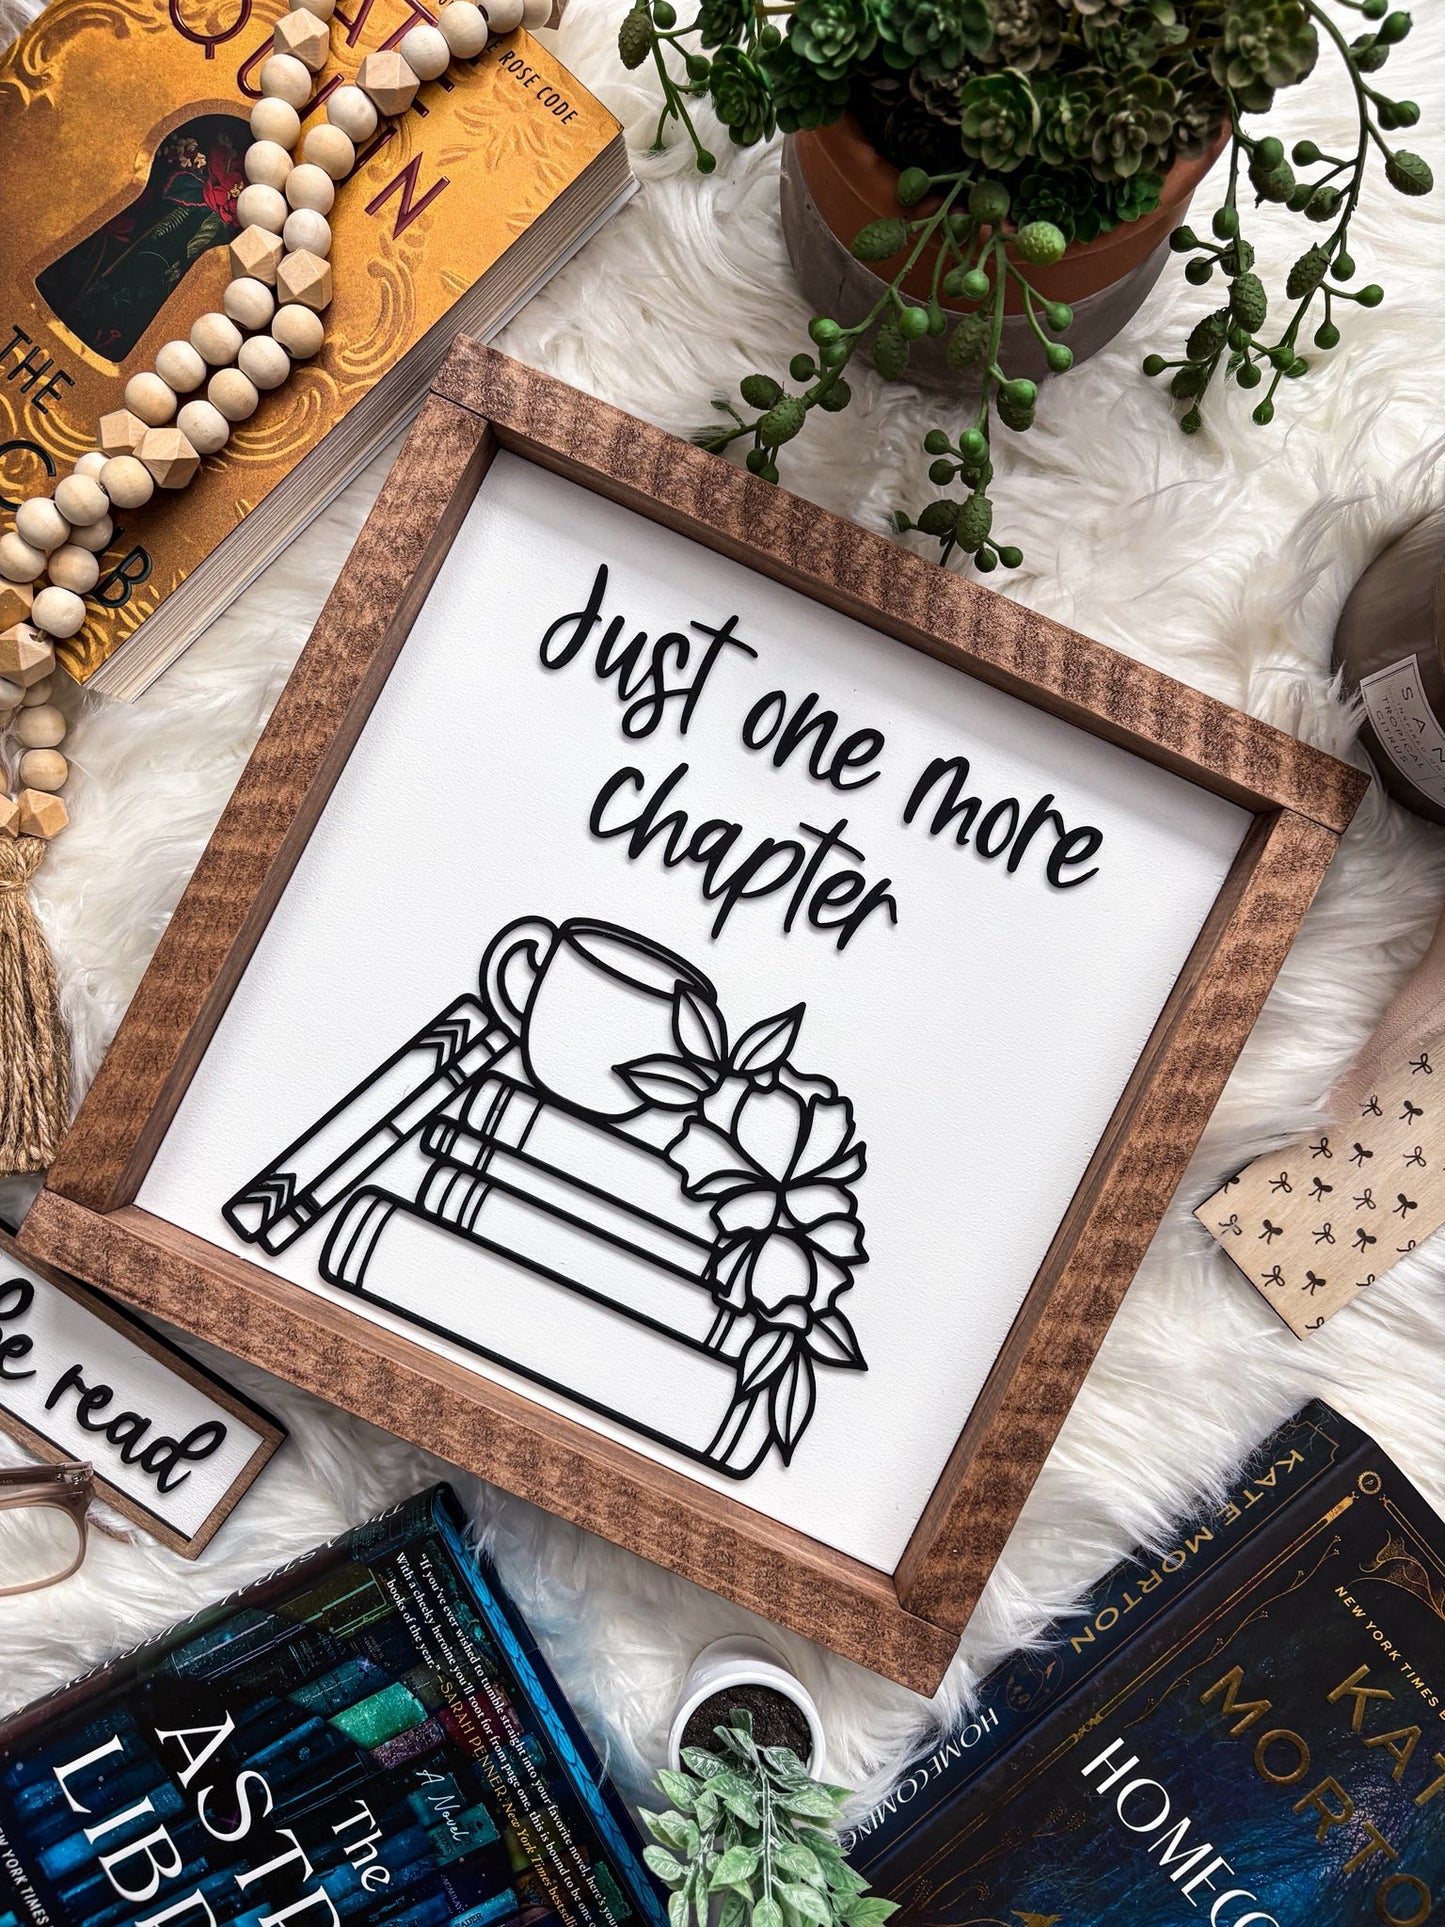 QUINN
THE ROSE CODE
THE
Just one more
chapter
be read
SAN
INSPIRED BY
TROPICAL
CITRUS
KATE MORTON
HOMECOMING
NEW YORK TIMES
MORTO
HOMECO
"If you've ever wished to tumble straight into your favorite novel, here's your
With a cheeky heroine you'll root for from page one, this is bound to be one of
books of the year." -SARAH PENNER, New York Times bestsel
The
A Novel
AST
LIB
NEW YORK TIMES